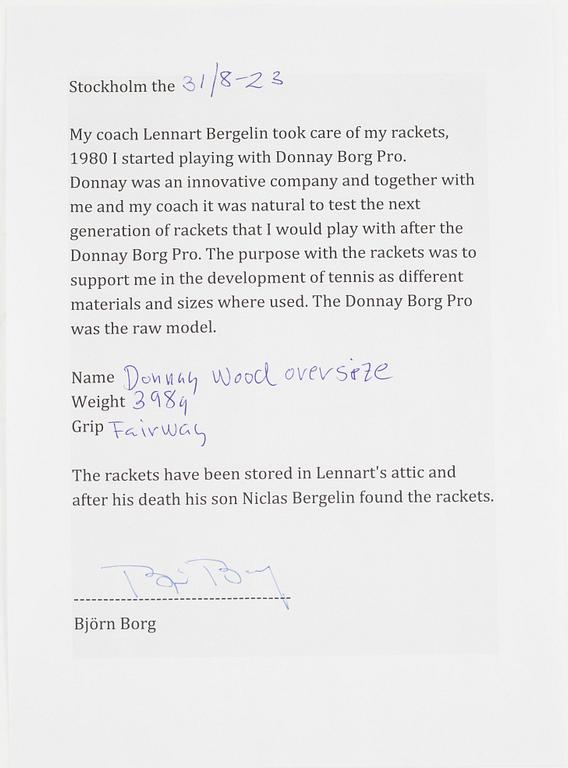 Stockholm the 31/8-23
My coach Lennart Bergelin took care of my rackets,
1980 I started playing with Donnay Borg Pro.
Donnay was an innovative company and together with
me and my coach it was natural to test the next
generation of rackets that I would play with after the
Donnay Borg Pro. The purpose with the rackets was to
support me in the development of tennis as different
materials and sizes where used. The Donnay Borg Pro
was the raw model.
Name Donnay Wood oversize
Weight 398g
Grip Fairway
The rackets have been stored in Lennart's attic and
after his death his son Niclas Bergelin found the rackets.
Björn Borg
Björn Borg